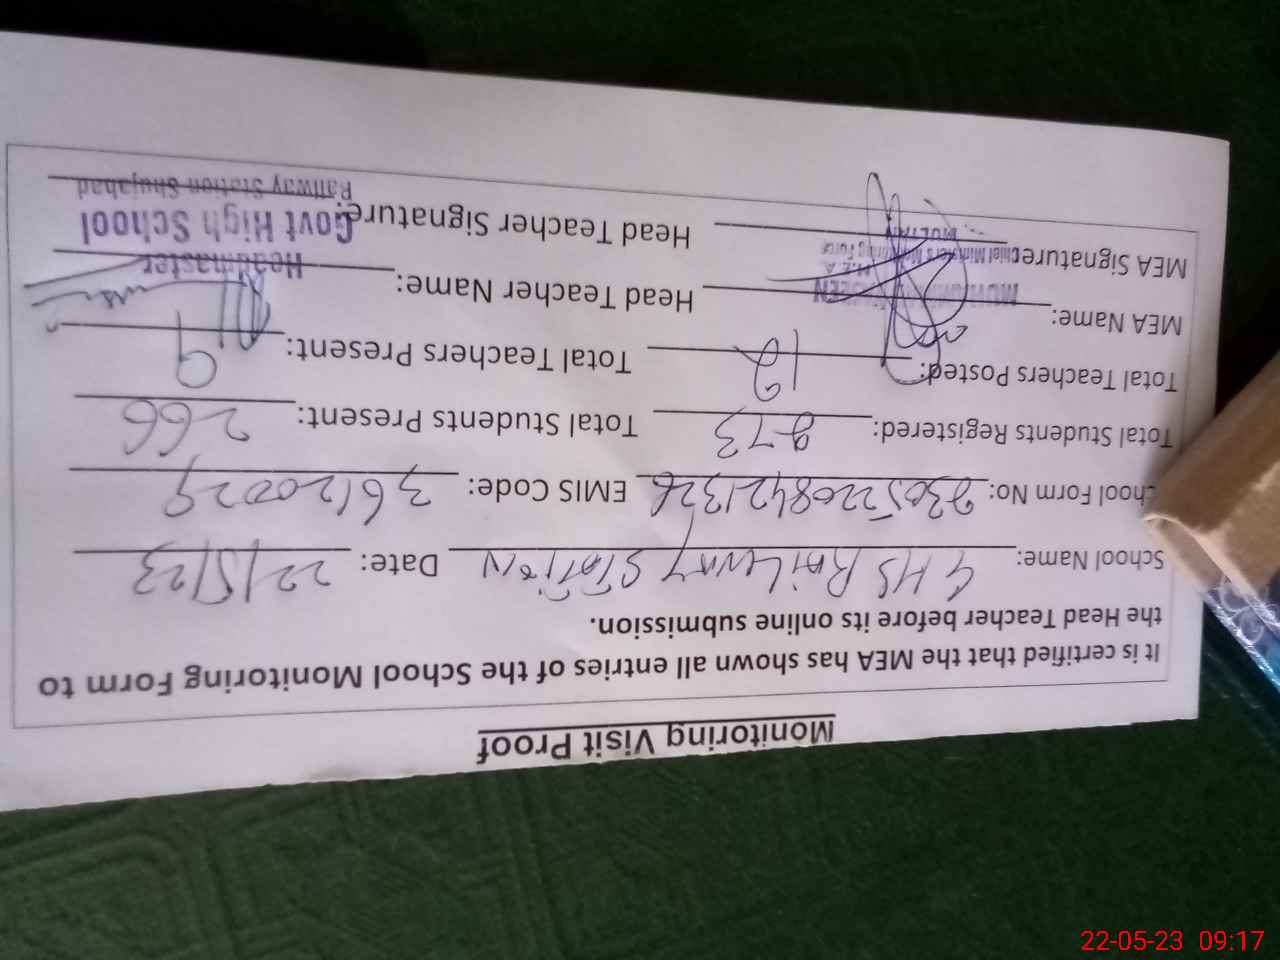 Monitoring Visit Proof
It is certified that the MEA has shown all entries of the School Monitoring Form to
the Head Teacher before its online submission.
School Name: GHS Railway Station Date: 22/5/23
School Form No: EMIS Code: 36120029
Total Students Registered: 273 Total Students Present: 266
Total Teachers Posted: 12 Total Teachers Present: 9
MEA Name: Head Teacher Name:
Headmaster
M.E.A
Chief Minister's Monitoring Force
MEA Signature: Head Teacher Signature:
Govt High School
MULTAN
Railway Station Shujabad
22-05-23 09:17